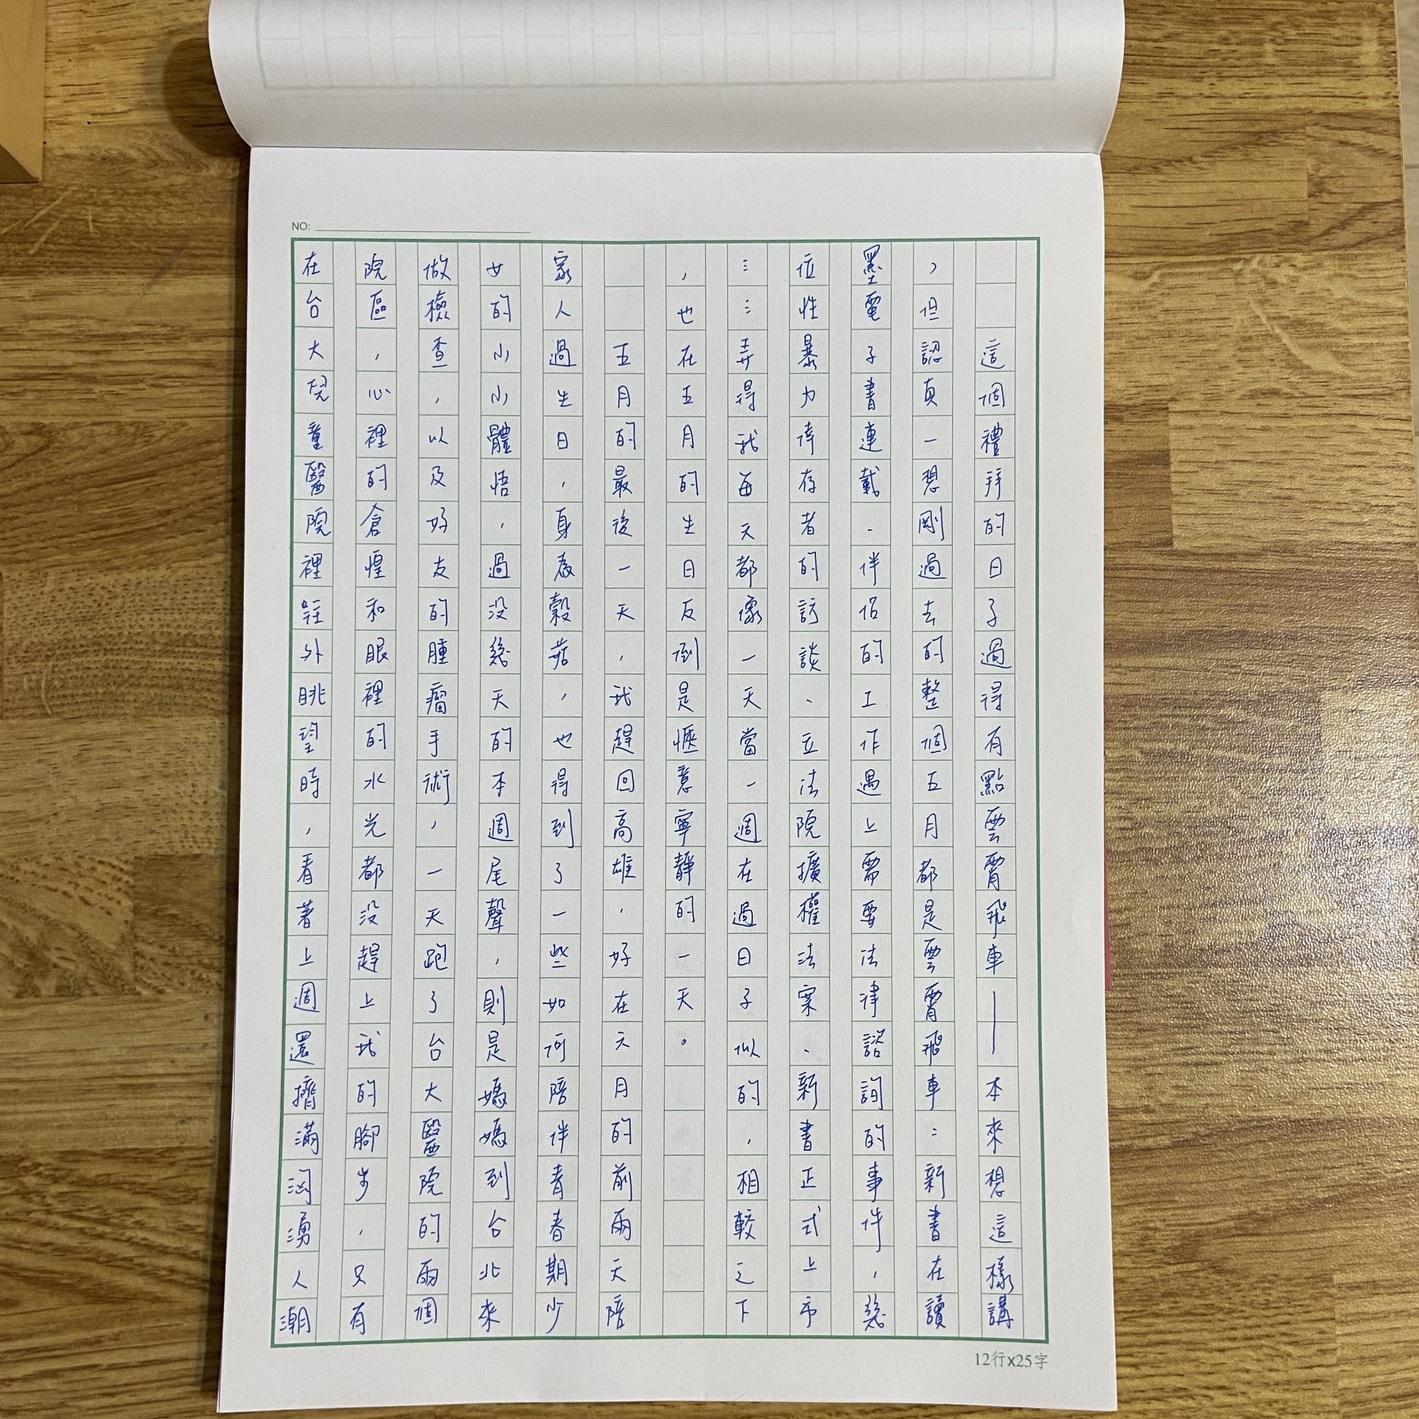 NO:
這個禮拜的日子過得有點雲霄飛車——本來想這樣講
，但認真一想剛過去的整個五月都是雲霄飛車：新書在讀
墨電子書連載、伴侶的工作遇上需要法律諮詢的事件，幾
位性暴力倖存者的訪談、立法院擴權法案、新書正式上市
……弄得我每天都像一天當一週在過日子似的，相較之下
，也在五月的生日反倒是愜意寧靜的一天。
五月的最後一天，我趕回高雄，好在六月的前兩天陪
家人過生日，身為穀菇，也得到了一些如何陪伴青春期少
女的小小體悟，過沒幾天的本週尾聲，則是媽媽到台北來
做檢查，以及好友的腫瘤手術，一天跑了台大醫院的兩個
院區，心裡的倉惶和眼裡的水光都沒趕上我的腳步，只有
在台大兒童醫院裡往外眺望時，看著上週還擠滿洶湧人潮
12行x25字